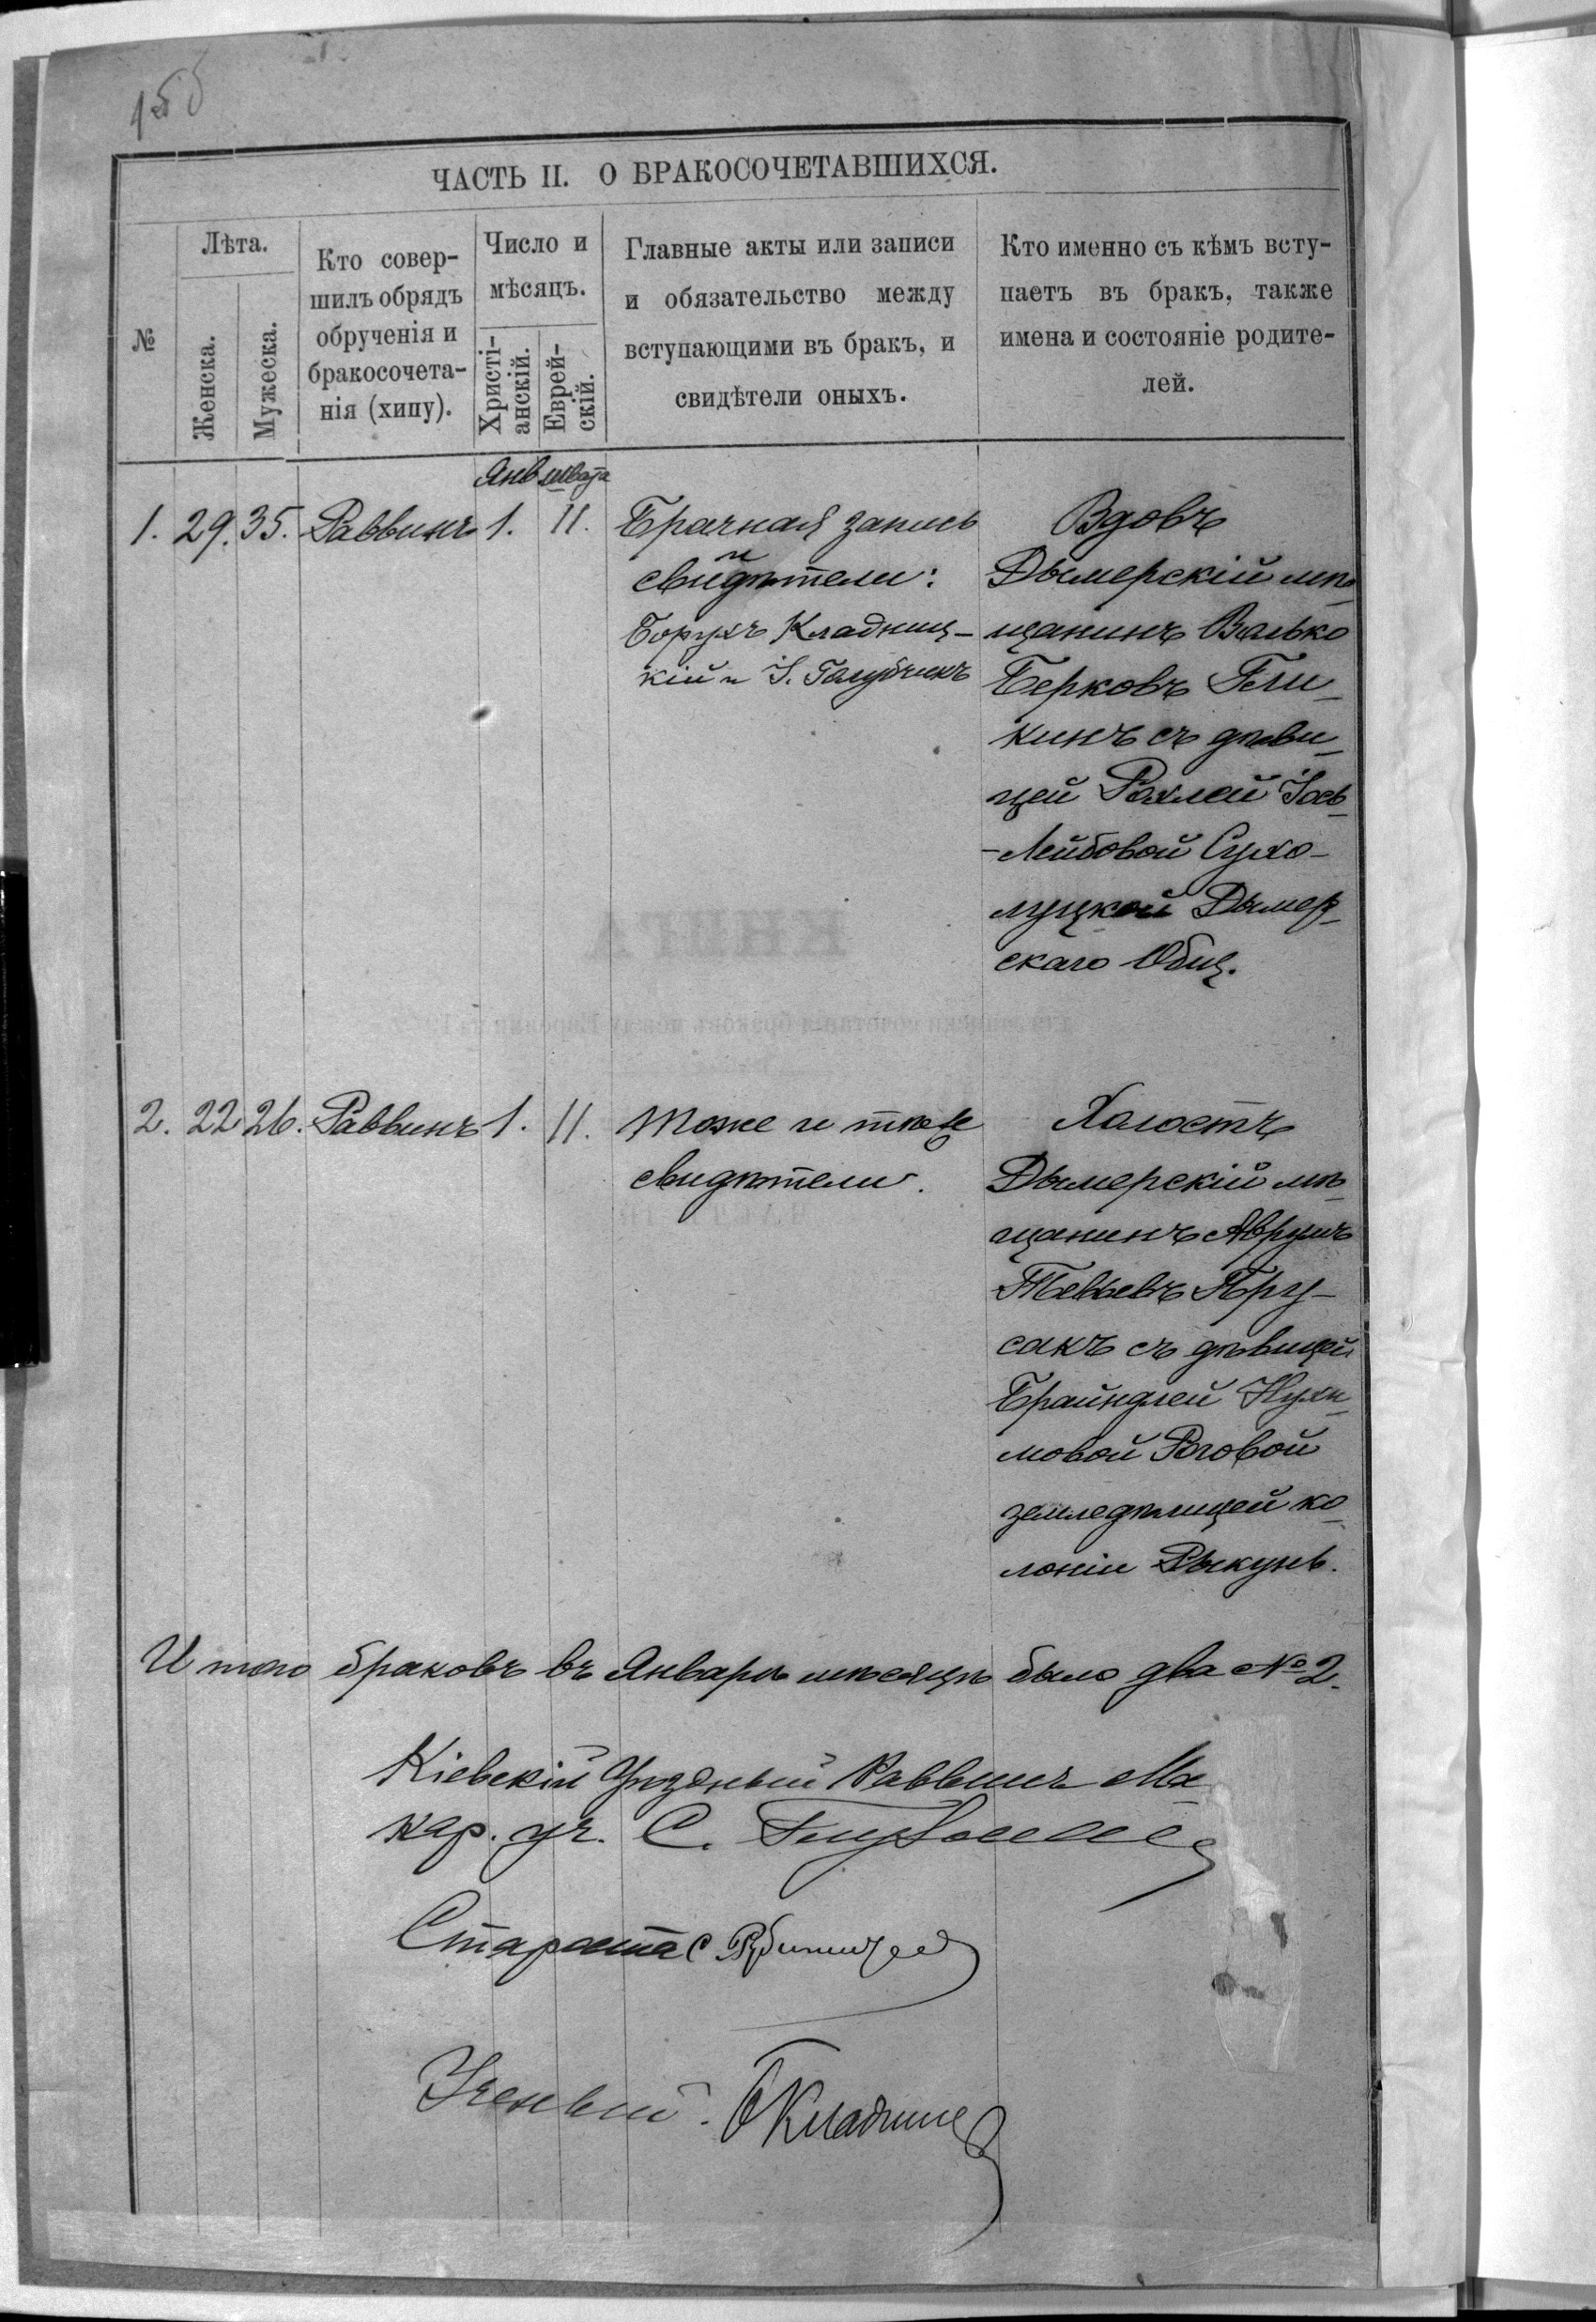 155
ЧАСТЬ II. О БРАКОСОЧЕТАВШИХСЯ.
№
Лѣта.
Женска.
Мужеска.
Кто совер-
шилъ обрядъ
обрученія и
бракосочета-
нія (хипу).
Число и
мѣсяцъ.
Христі-
анскій.
Еврей-
скій.
Главные акты или записи
и обязательство между
вступающими въ бракъ, и
свидѣтели оныхъ.
Кто именно съ кѣмъ всту-
паетъ въ бракъ, также
имена и состояніе родите-
лей.
Янв. шваta
1. 29. 35. Раввинъ 1. 11.
Брачная запись
и
свидѣтели:
Борухъ Кладниц-
кій и І. Голубчикъ
Вдовъ
Дымерскій мѣ-
щанинъ Волько
Берковъ Гли-
кинъ съ дѣви-
цей Рохлей Іось-
-Лейбовой Сухо-
луцкой Дымер-
скаго Общ.
2. 22 26. Раввинъ 1. 11.
Тоже и тѣже
свидѣтели.
Холостъ
Дымерскій мѣ-
щанинъ Аврумъ
Тевьевъ Пру-
сакъ съ дѣвицей
Брайндлей Нухи-
мовой Роговой
земледѣлицей ко-
лоніи Рыкунь.
Итого браковъ въ Январѣ мѣсяцѣ было два № 2.
Кіевскій Уѣздный Раввинъ Ма-
кар. уч. С.
Староста С
Ученый. Б Кладниц